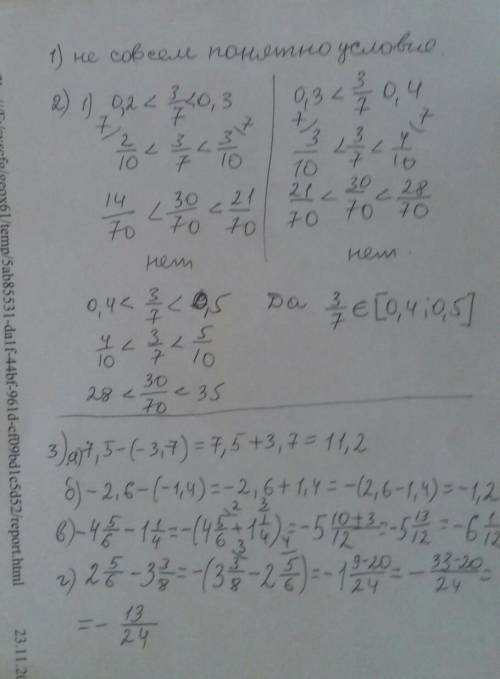 1) не совсем понятно условие.
2) 1) 0,2 < 3/7 < 0,3
7/ 2/10 < 3/7 < 3/10 \7
14/70 < 30/70 < 21/70
нет
0,3 < 3/7 0,4
7/ 3/10 < 3/7 < 4/10 \7
21/70 < 30/70 < 28/70
нет.
0,4 < 3/7 < 0,5 Да 3/7 ∈ [0,4; 0,5]
4/10 < 3/7 < 5/10
28 < 30/70 < 35
3) а) 7,5-(-3,7) = 7,5+3,7 = 11,2
б) -2,6-(-1,4) = -2,6+1,4 = -(2,6-1,4) = -1,2
в) -4 5/6 - 1 1/4 = -(4 5/6 \2 + 1 1/4 \3) = -5 (10+3)/12 = -5 13/12 = -6 1/12
г) 2 5/6 - 3 3/8 = -(3 3/8 \3 - 2 5/6 \4) = -1 (9-20)/24 = - (33-20)/24 =
= - 13/24
/temp/5ab85531-da1f-44bf-961d-cf09bd1e5d52/report.html
23.11.20